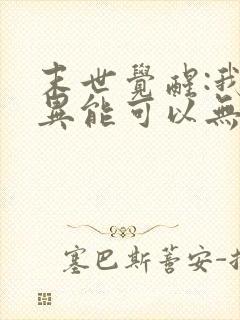 末世覺醒:我
異能可以無
塞巴斯蒼安-